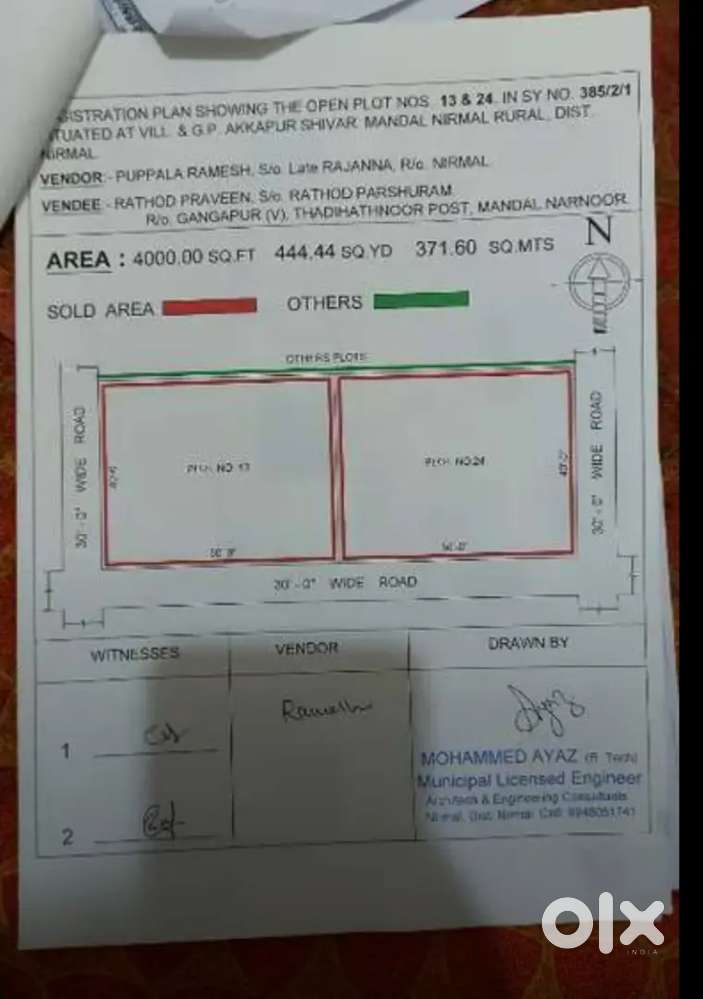 GISTRATION PLAN SHOWING THE OPEN PLOT NOS. 13 & 24. IN SY NO. 385/2/1
TUATED AT VILL. & G.P. AKKAPUR SHIVAR. MANDAL NIRMAL RURAL, DIST.
NIRMAL
VENDOR:- PUPPALA RAMESH, S/o. Late RAJANNA, R/o. NIRMAL.
VENDEE:- RATHOD PRAVEEN, S/o. RATHOD PARSHURAM
R/o. GANGAPUR (V), THADIHATHNOOR POST, MANDAL NARNOOR
AREA : 4000.00 SQ.FT 444.44 SQ.YD 371.60 SQ.MTS
N
SOLD AREA OTHERS
OTHERS PLOTS
30'-0" WIDE ROAD
PLOT NO. 13
PLOT NO.24
30'-0" WIDE ROAD
30'-0" WIDE ROAD
WITNESSES
VENDOR
DRAWN BY
Ramesh
Ayaz
1
2
MOHAMMED AYAZ (B. Tech)
Municipal Licensed Engineer
Architech & Engineering Consultants
Nirmal, Dist. Nirmal Cell: 9948051741
olx
INDIA